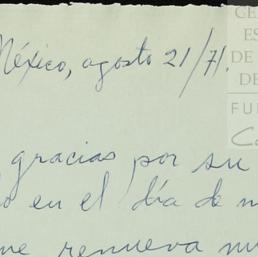 México, agosto 21/71.
CE
ES
DE
DE
FU
gracias por su
en el día de
me renueva